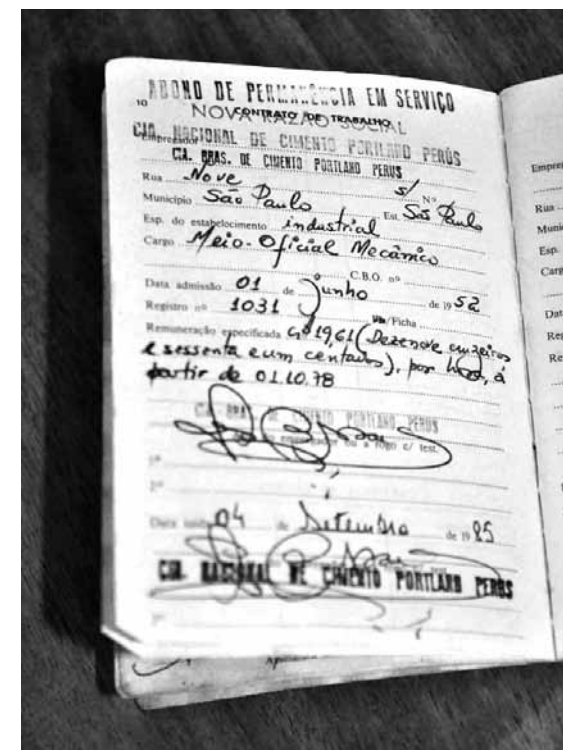 ABONO DE PERMANÊNCIA EM SERVIÇO
10
CONTRATO DE TRABALHO
NOVA RAZÃO SOCIAL
CIA. NACIONAL DE CIMENTO PORTLAND PERÚS
Empregador
CIA. BRAS. DE CIMENTO PORTLAND PERUS
Rua Nove Nº s/
Município São Paulo Est. São Paulo
Esp. do estabelecimento industrial
Cargo Meio-Oficial Mecânico
C.B.O. nº
Data admissão 01 de Junho de 19 52
Registro nº 1031 /Ficha
Remuneração especificada Cr$ 19,61 (Dezenove cruzeiros
e sessenta e um centavos), por hora, á
partir de 01.10.78
CIA. BRAS. DE CIMENTO PORTLAND PERUS
ou a rogo c/ test.
1º
2º
Data saída 04 de Setembro de 19 85
CIA. NACIONAL DE CIMENTO PORTLAND PERUS
Empre
Rua
Muni
Esp.
Carg
Dat
Reg
Re